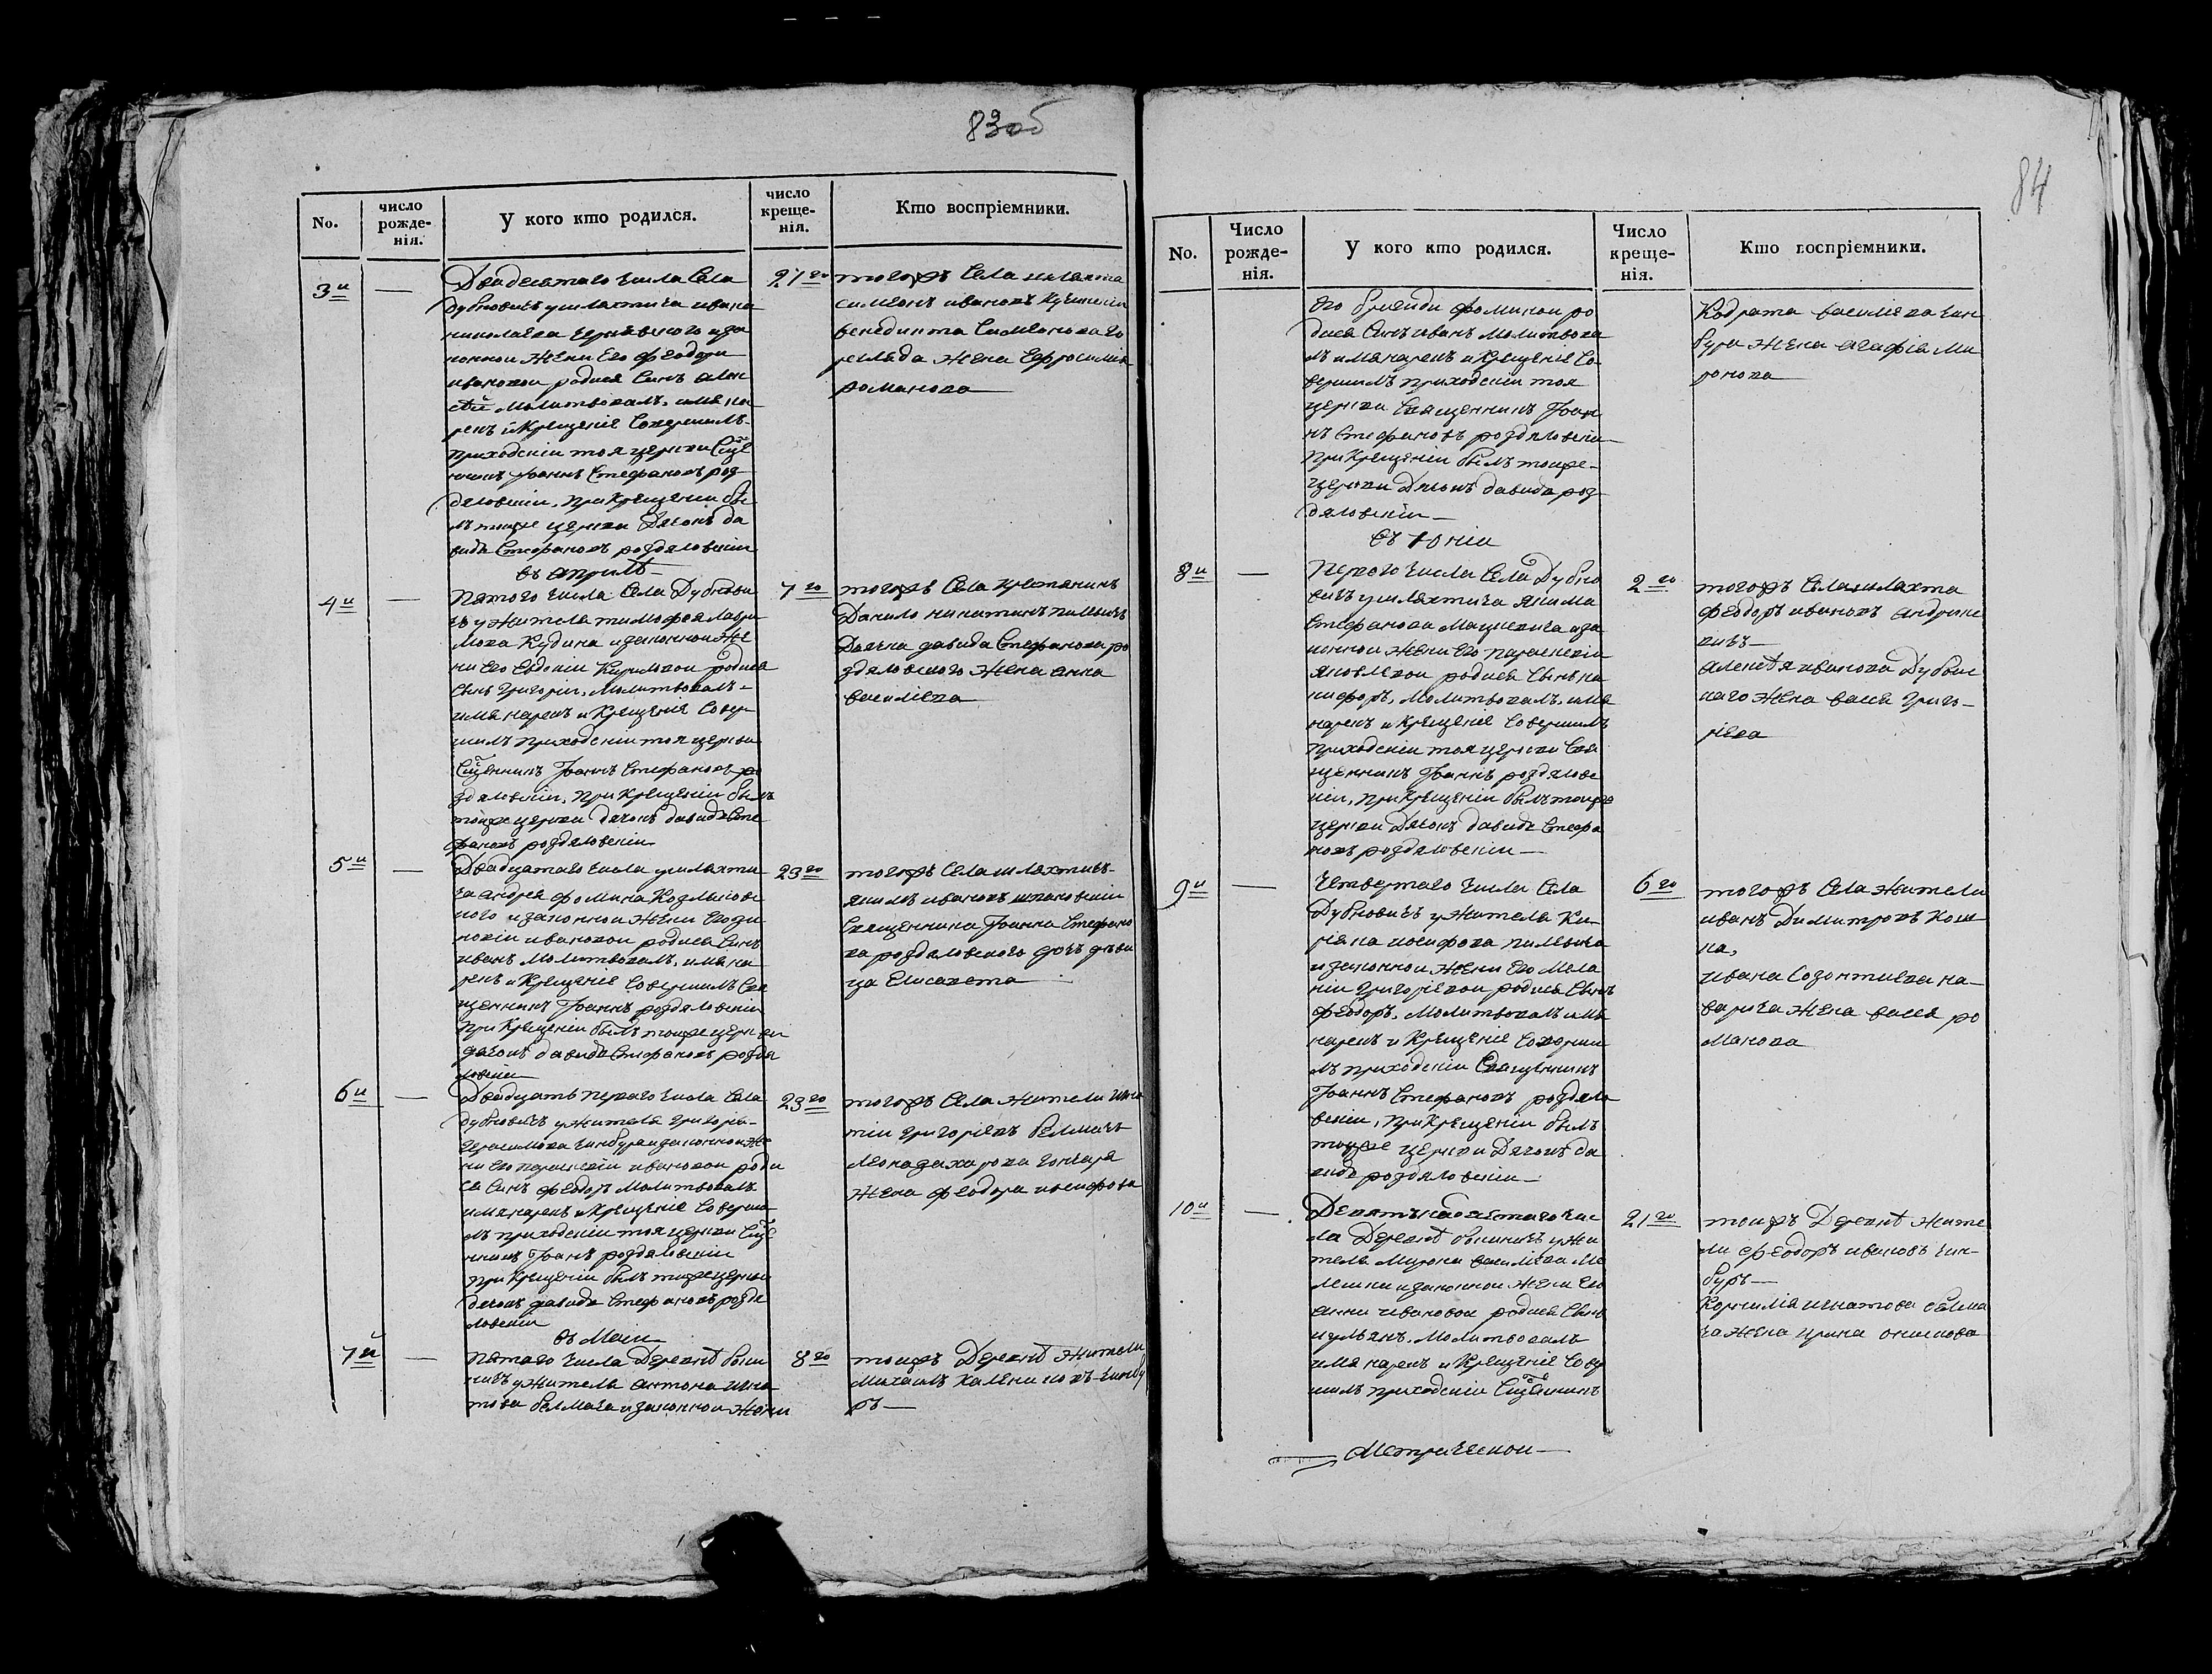 83об
No.
число рожденія.
У кого кто родился.
число крещенія.
Кто воспріемники.
3й
—
Двадесятаго числа Села
дубновичъ у шляхтича ивана
николаева иза
конной жени Его феодори
ивановой родися Синъ алек
сѣй молитвовалъ, имя на
рекъ и крещеніе Совершилъ
приходскіи тоя церкви Сщ҃е
нникъ Іоаннъ Стефановъ роз
дяловскіи, при крещеніи бы
лъ тоиже церкви Дячокъ да
видъ Стефановъ роздяловскіи
21го
тогожъ Села шляхта
симеонъ ивановъ
венедикта Симеонова го
регляда жена Ефросинія
романова
въ априлѣ
4й
—
Пятого числа Села Дубнови
чъ у жителя тимофея лаври
мова Кудина изаконной же
ни Его Евдокіи Кириловой родися
Синъ григоріи, Молитвовалъ
имя нарекъ и крещеніе Совер
шилъ приходскіи тоя церкви
Сщ҃енникъ Іоаннъ Стефановъ ро
здяловскіи, при крещеніи былъ
тоиже церкви дячокъ давидъ Сте
фановъ роздяловскіи
7го
тогожъ Села крестянинъ
Данило никитинъ пилевичъ
Дячка давида Стефанова ро
здяловского жена анна
василіева
5й
—
Двадцатаго числа у шляхти
ча андрея фомина Козляков
ского изаконной жени Его
ивановой родися Синъ
иванъ молитвовалъ, имя на
рекъ и крещеніе Совершилъ Свя
щенникъ Іоаннъ роздяловскіи
при крещеніи былъ тоиже церкви
дячокъ давидъ Стефановъ роздя
ловскіи
23го
тогожъ Села шляхтичъ
якимъ ивановъ
Священника Іоанна Стефано
ва роздяловского дочъ дѣви
ца Елисавета
6й
—
Двадцать перваго числа Села
дубновичъ у жителя григорія
герасимова чинбура изаконной же
ни Его параскевіи ивановой роди
ся Синъ феодоръ Молитвовалъ
имя нарекъ и крещеніе Соверши
лъ приходскіи тоя церкви Сщ҃е
нникъ Іоанъ роздяловскіи
при крещеніи былъ тоиже церкви
дячокъ давидъ Стефановъ роздя
ловскіи
23го
тогожъ Села жители игна
тіи григоріевъ белмачъ
леона захарова гончара
жена феодора иосифова
въ Маіи
7й
—
пятаго числа Деревнѣ выш
ничъ у жителя антона игна
това белмача изаконной жени
8го
тоижъ Деревнѣ жители
Михаилъ Калениковъ чинбу
ръ
84
No.
Число рожденія.
У кого кто родился.
Число крещенія.
Кто воспріемники.
Его бригиди фоминой ро
дися Синъ иванъ молитвова
лъ имя нарекъ и крещеніе Со
вершилъ приходскіи тоя
церкви Священникъ Іоан
нъ Стефановъ роздяловскіи
при крещеніи былъ тоиже
церкви Дячокъ давидъ роз
дяловскіи
Кодрата василіева чин
бура жена агафія ми
ронова
въ Юніи
8й
—
Перваго числа Села Дубно
вичъ у шляхтича якима
Стефанова Мацкевича иза
конной жени Его параскевіи
яковлевой родися Синъ ни
кифоръ, молитвовалъ, имя
нарекъ и крещеніе Совершилъ
приходскіи тоя церкви Свя
щенникъ Іоаннъ роздяловс
кіи, при крещеніи былъ тоиже
церкви Дячокъ давидъ Стефа
новъ роздяловскіи
2го
тогожъ Села шляхта
феодоръ ивановъ андрие
вичъ
алексѣя иванова Дубвис
каго жена васса григо
ріева
9й
—
Четвертаго числа Села
Дубновичъ у жителя Ки
ріяна иосифова пилевича
изаконной жени Его Мела
ніи григоріевой родися Синъ
феодоръ, Молитвовалъ имя
нарекъ и крещеніе Соверши
лъ приходскіи Священникъ
Іоаннъ Стефановъ роздяло
вскіи, при крещеніи былъ
тоиже церкви Дячокъ да
видъ роздяловскіи
6го
тогожъ Села жители
иванъ Димитровъ Кош
ка,
ивана Созонтиева на
варича жена васса ро
манова
10й
—
Девятънадцетаго чис
ла Деревнѣ вишничъ у жи
теля Мирона василіева Ме
лешки изаконной жени Его
анни ивановой родися Синъ
иулиянъ, Молитвовалъ
имя нарекъ и крещеніе Совер
шилъ приходскіи Сщ҃енникъ
21го
тоижъ Деревнѣ жите
ли феодоръ ивановъ чин
буръ
Корнилія игнатова белма
ча жена ирина
Метрической